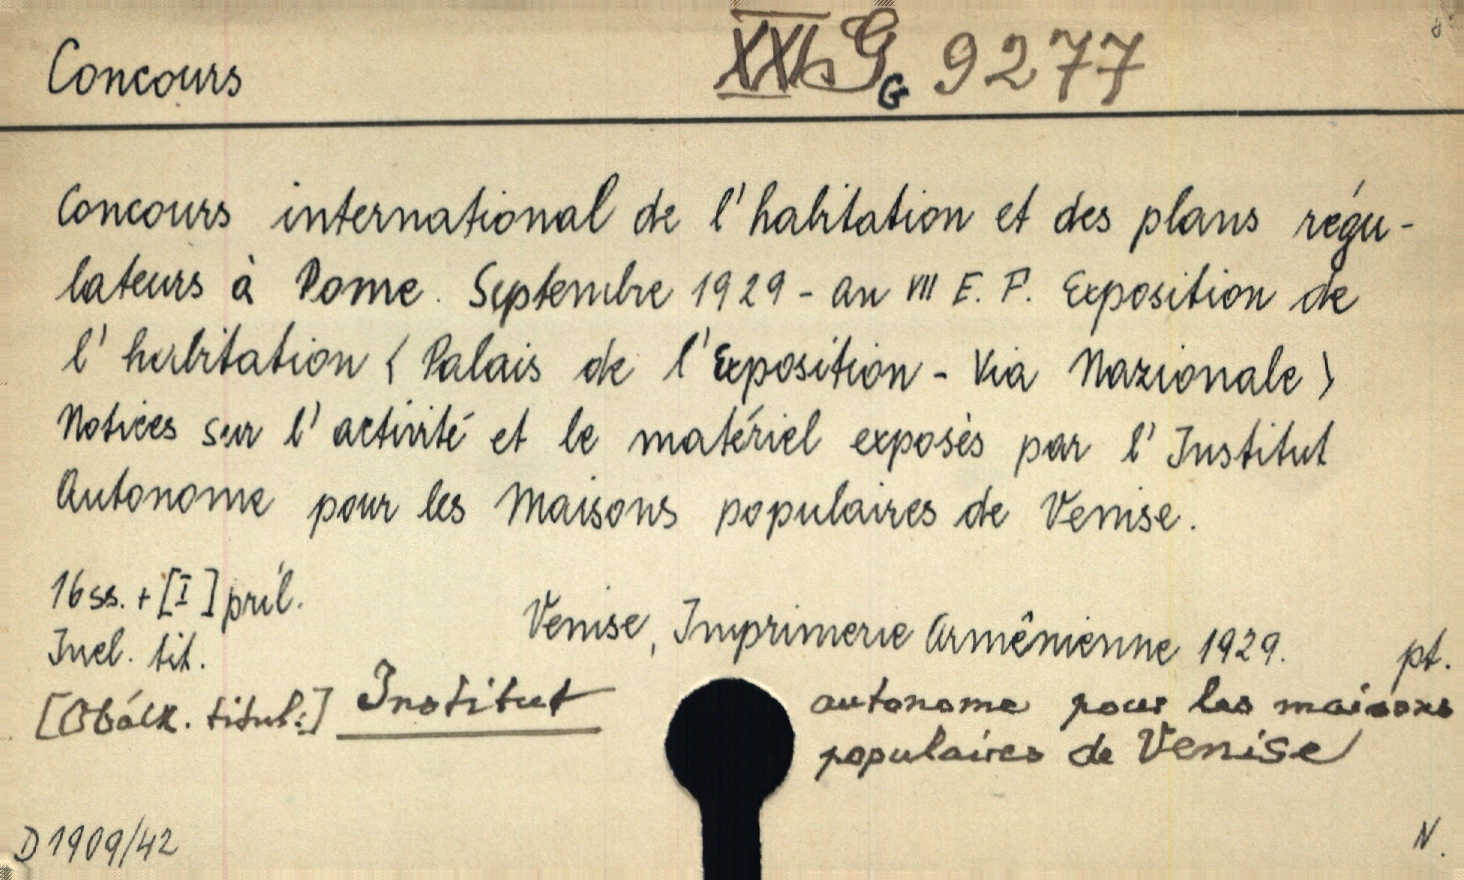 Concours
XXIb G G 9277
Concours international de l'habitation et des plans régu-
lateurs à Rome. Septembre 1929 - an VII E. F. Exposition de
l'habitation (Palais de l'Exposition - Via Nazionale)
Notices sur l'activité et le matériel exposés par l'Institut
Autonome pour les Maisons populaires de Venise.
16 ss. + [I] príl.
Venise, Imprimerie Armênienne 1929.
Incl. tit.
pt.
[Obálk. titul:] Institut autonome pour les maisons
populaires de Venise
D 1909/42
N.